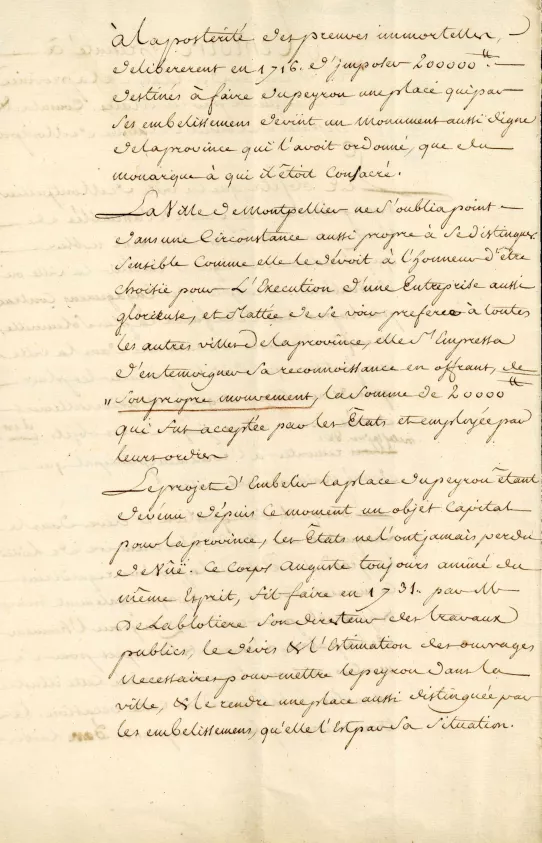 à la postérité des preuves immortelles,
délibererent en 1716. d'Imposer 200000 ᵗᵗ.
destinés à faire du peyrou une place qui par
ses embelissemens devint un monument aussi digne
de la province qui l'avoit ordonné, que du
monarque à qui il étoit Consacré.
La Ville de Montpellier ne s'oublia point
dans une Circonstance aussi propre à se distinguer
sensible Comme elle le devoit à l'honneur d'être
choisie pour L'Execution d'une Entreprise aussi
glorieuse, et flattée de se voir preferée à toutes
les autres villes de la province, elle s'Empressa
d'en temoigner sa reconnoissance en offrant, de
"son propre mouvement, la somme de 20000 ᵗᵗ
qui fut acceptée par les États et employée par
leurs ordres
Le projet d'Embelir la place du peyrou étant
devenu dépuis ce moment un objet Capital
pour la province, les États ne l'ont jamais perdu
de Nüe. Ce Corps Auguste toujours animé du
même Esprit, fit faire en 1731. par Mr
De Lablotiere son directeur des travaux
publics, le dévis & l'Estimation des ouvrages
Necessaires pour mettre le peyrou dans la
ville, & le rendre une place aussi distinguée par
les embelissemens, qu'elle l'Est par sa situation.